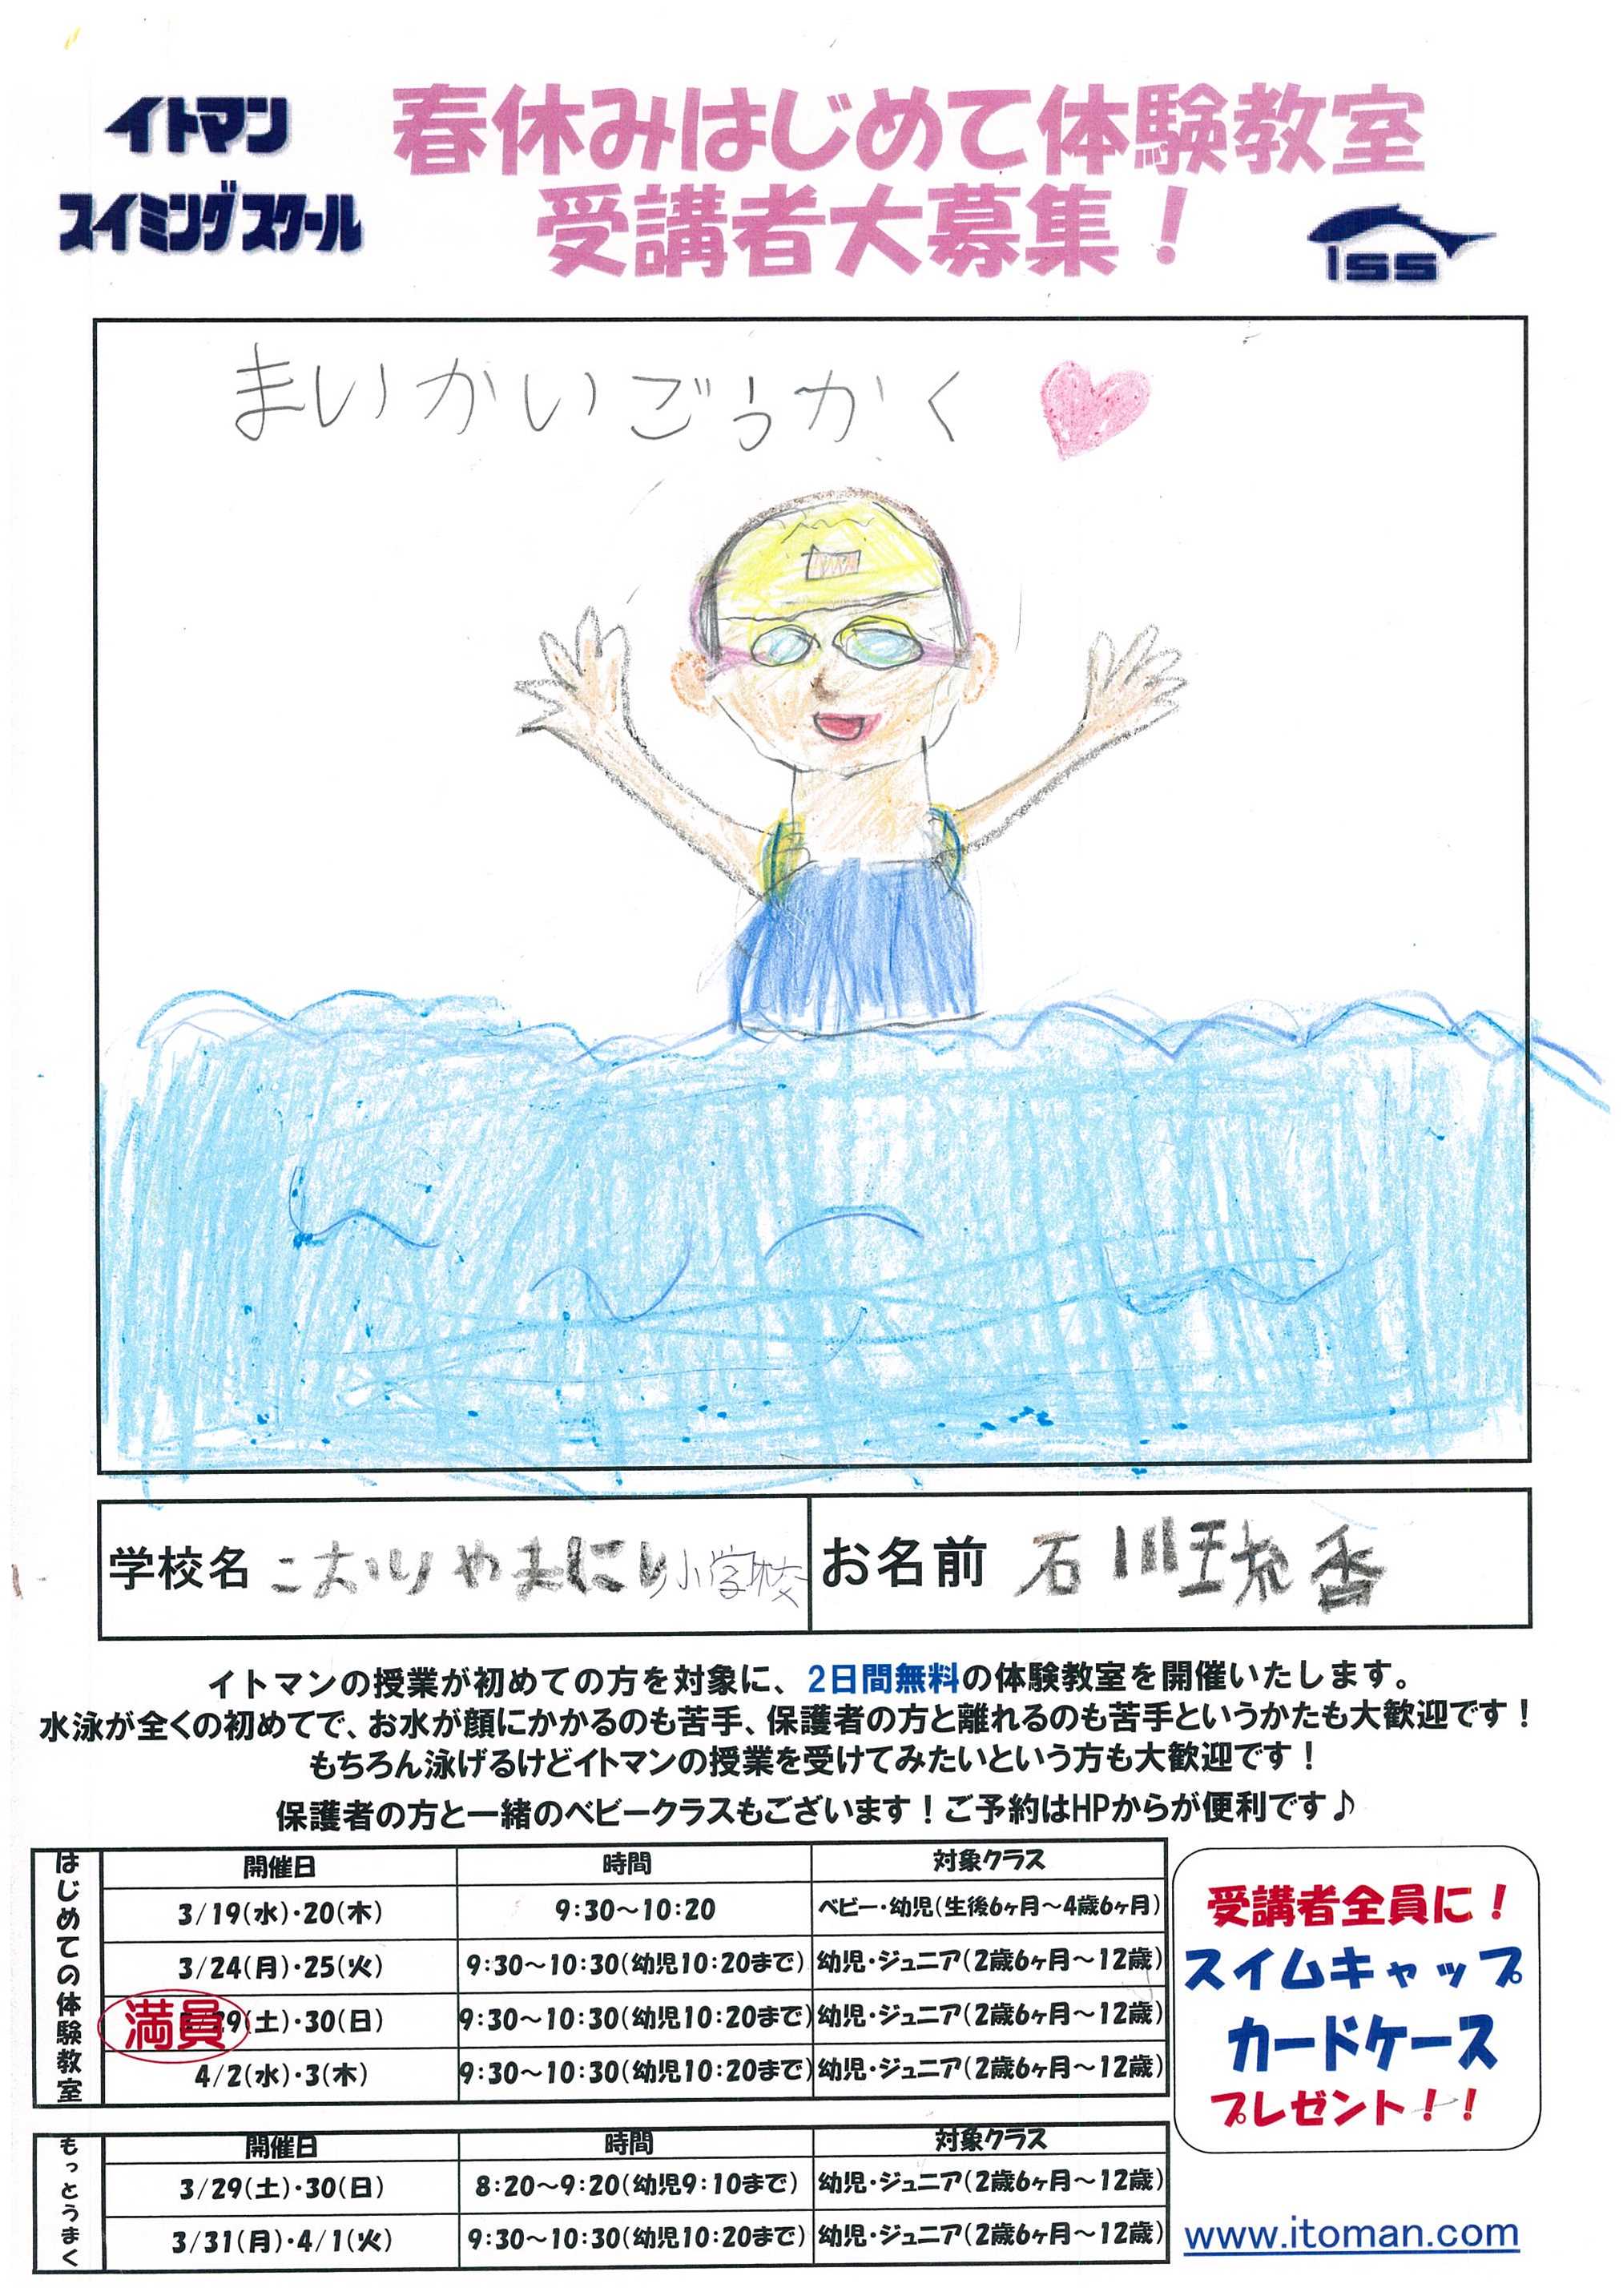 イトマン
スイミングスクール
春休みはじめて体験教室
受講者大募集！
ISS
まいかいごうかく
学校名 こおりやまにし小学校
お名前 石川珖香
イトマンの授業が初めての方を対象に、2日間無料の体験教室を開催いたします。
水泳が全くの初めてで、お水が顔にかかるのも苦手、保護者の方と離れるのも苦手というかたも大歓迎です！
もちろん泳げるけどイトマンの授業を受けてみたいという方も大歓迎です！
保護者の方と一緒のベビークラスもございます！ご予約はHPからが便利です♪
はじめての体験教室
開催日 時間 対象クラス
3/19(水)・20(木) 9:30～10:20 ベビー・幼児(生後6ヶ月～4歳6ヶ月)
3/24(月)・25(火) 9:30～10:30(幼児10:20まで) 幼児・ジュニア(2歳6ヶ月～12歳)
満員 29(土)・30(日) 9:30～10:30(幼児10:20まで) 幼児・ジュニア(2歳6ヶ月～12歳)
4/2(水)・3(木) 9:30～10:30(幼児10:20まで) 幼児・ジュニア(2歳6ヶ月～12歳)
受講者全員に！
スイムキャップ
カードケース
プレゼント！！
もっとうまく
開催日 時間 対象クラス
3/29(土)・30(日) 8:20～9:20(幼児9:10まで) 幼児・ジュニア(2歳6ヶ月～12歳)
3/31(月)・4/1(火) 9:30～10:30(幼児10:20まで) 幼児・ジュニア(2歳6ヶ月～12歳)
www.itoman.com